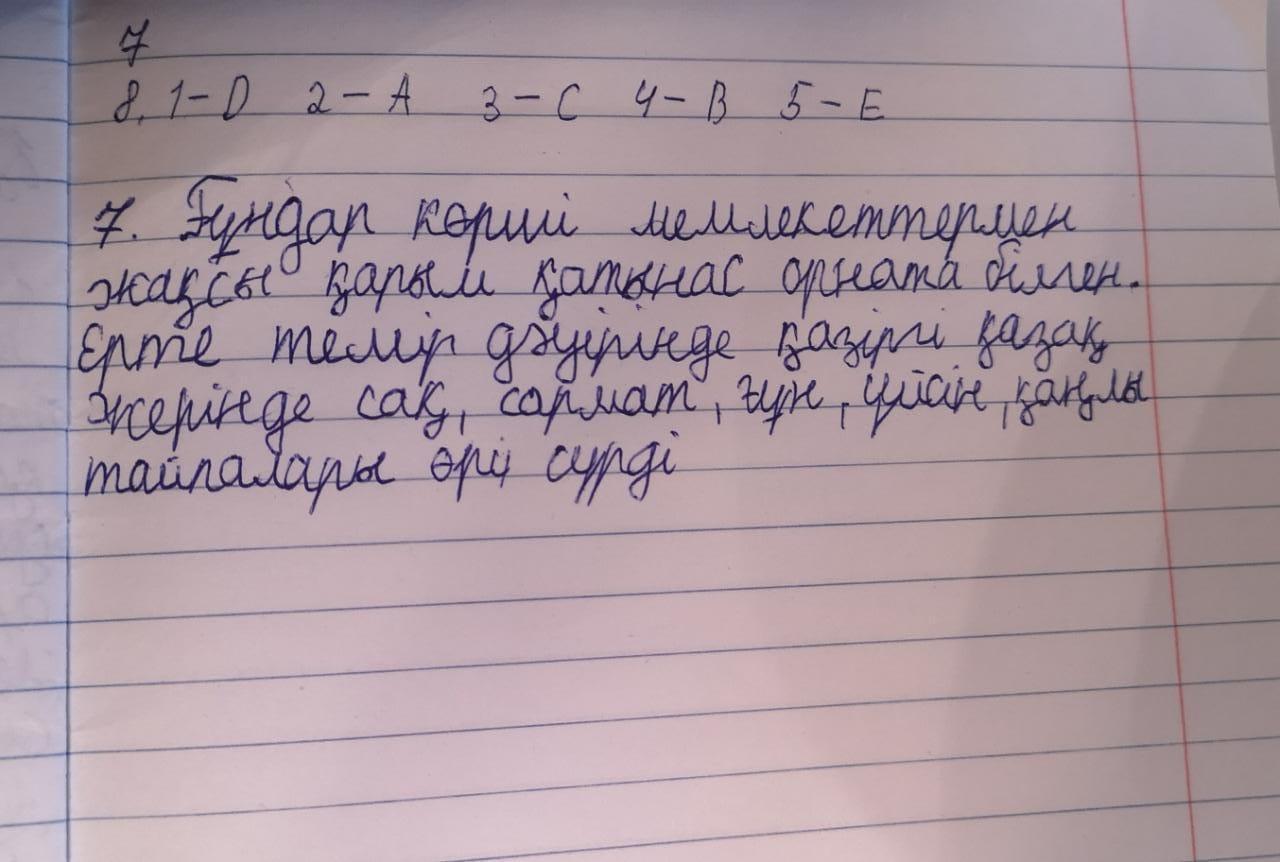 7
8. 1-D 2-A 3-C 4-B 5-E
7. Ғұндар көрші мемлекеттермен
жақсы қарым қатынас орната білген.
Ерте темір дәуірінде қазіргі қазақ
жерінде сақ, сармат, ғұн, үйсін, қаңлы
тайпалары өрің сүрді